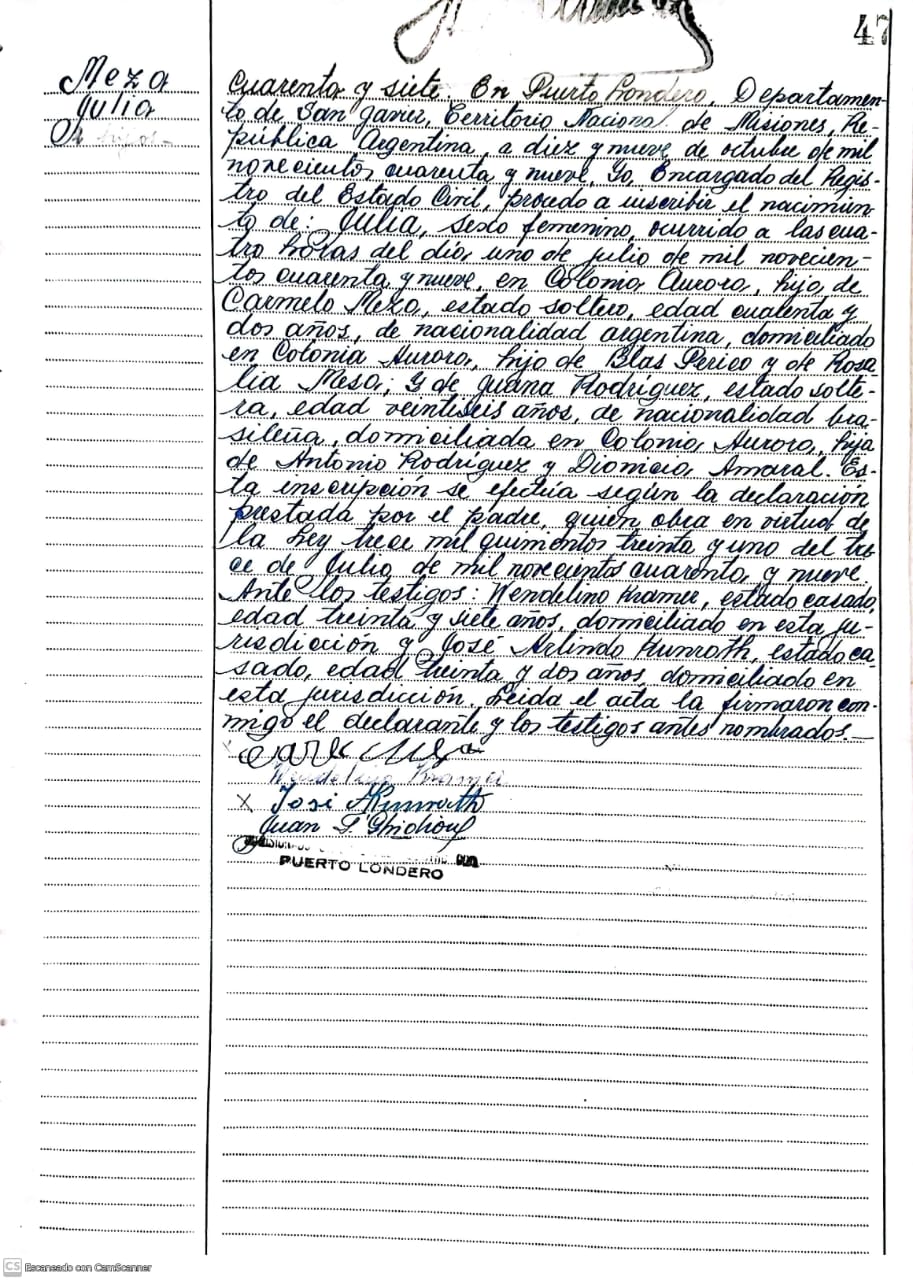 47
Meza
Julia
cuarenta y siete. En Puerto Londero, Departamen-
to de San Javier, Territorio Nacional de Misiones, Re-
pública Argentina, a diez y nueve de octubre de mil
novecientos cuarenta y nueve. Yo, Encargado del Regis-
tro del Estado Civil, procedo a inscribir el nacimien-
to de: JULIA, sexo femenino, ocurrido a las cua-
tro horas del día uno de julio de mil novecien-
tos cuarenta y nueve, en Colonia Aurora, hija de
Carmelo Meza, estado soltero, edad cuarenta y
dos años, de nacionalidad argentina, domiciliado
en Colonia Aurora, hijo de Blas Perico y de Rosa
lia Mesa; Y de Juana Rodríguez, estado solte-
ra, edad veintiseis años, de nacionalidad bra-
sileña, domiciliada en Colonia Aurora, hija
de Antonio Rodríguez y Dionicia Amaral. Es-
ta inscripción se efectúa según la declaración
prestada por el padre, quien obra en virtud de
la Ley trece mil quinientos treinta y uno del tre
ce de Julio de mil novecientos cuarenta y nueve.
Ante los testigos: Wendelino Kramer, estado casado,
edad treinta y siete años, domiciliado en esta ju-
risdicción y José Arlindo Kunrath, estado ca-
sado, edad treinta y dos años, domiciliado en
esta jurisdicción. Leida el acta la firmaron con-
migo el declarante y los testigos antes nombrados.—
Wendelino Kramer
X José A Kunrath
Juan
PUERTO LONDERO
CS Escaneado con CamScanner